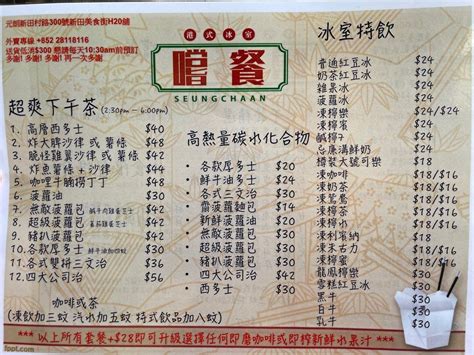 元朗新田村路300號新田美食街H20舖
外賣專線 +852 28118116
送貨低消$300 懇請每天10:30am前預訂
多謝! 多謝! 再一次多謝!
港式冰室
嚐餐
SEUNGCHAAN
冰室特飲
普通紅豆冰 $24
奶茶紅豆冰 $24
雜果冰 $24
菠蘿冰 $24
凍檸樂 $24
凍檸賓 $24
鹹檸7 $24
忌廉溝鮮奶 $24
樽裝大號可樂 $24
凍咖啡 $18/$16
凍奶茶 $18/$16
凍鴛鴦 $18/$16
凍檸茶 $18/$16
凍檸水 $18/$16
凍利賓納 $18
凍朱古力 $18
凍檸蜜 $18/$16
龍鳳檸樂 $30
雪糕紅豆冰 $30
黑牛 $30
白牛 $30
乳牛 $30
超爽下午茶 (2:30pm - 6:00pm)
1. 高層西多士 $40
2. 炸大脾沙律 或 薯條 $48
3. 脆怪雞翼沙律 或 薯條 $42
4. 炸魚薯條 + 沙律 $44
5. 咖哩牛腩撈丁丁 $48
6. 菠蘿油 $30
7. 無敵菠蘿包 $42
8. 超級菠蘿包 $42
9. 豬扒菠蘿包 $42
10. 各款厚多士 $40
11. 各式雙拼三文治 $36
12. 四大公司治 $56
咖啡或茶
(凍飲加三蚊 汽水加五蚊 特式飲品加八蚊)
高熱量碳水化合物
• 各款厚多士 $22
• 鮮牛油多士 $22
• 各式三文治 $22
• 齋菠蘿麵包 $10
• 新鮮菠蘿油 $16
• 無敵菠蘿包 $28
• 超級菠蘿包 $28
• 豬扒菠蘿包 $28
• 四大公司治 $42
• 西多士 $26
***以上所有套餐+$28即可升級選擇任何即磨咖啡或即榨新鮮水果汁***
fppt.com